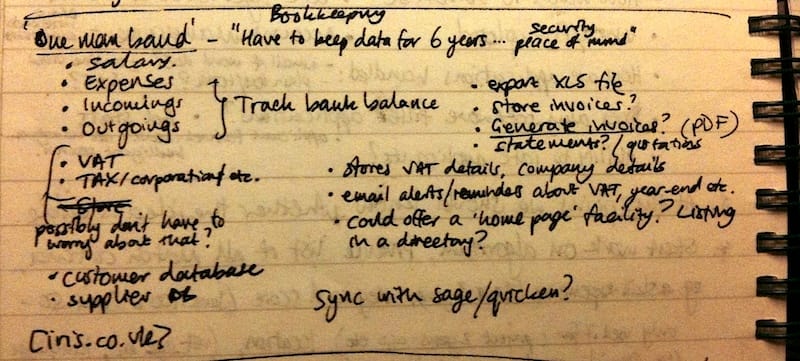 Bookkeeping
'One man band' - "Have to keep data for 6 years... security peace of mind"
• Salary.
• Expenses
• Incomings
• Outgoings
Track bank balance
• VAT
• TAX/corporation/etc.
• Store
possibly don't have to
worry about that?
• customer database
• supplier db
[iris.co.uk?]
• export XLS file
• store invoices?
• Generate invoices? (PDF)
• statements?/quotations
• stores VAT details, company details
• email alerts/reminders about VAT, year-end etc.
• could offer a 'home page' facility? Listing
in a directory?
Sync with sage/quicken?